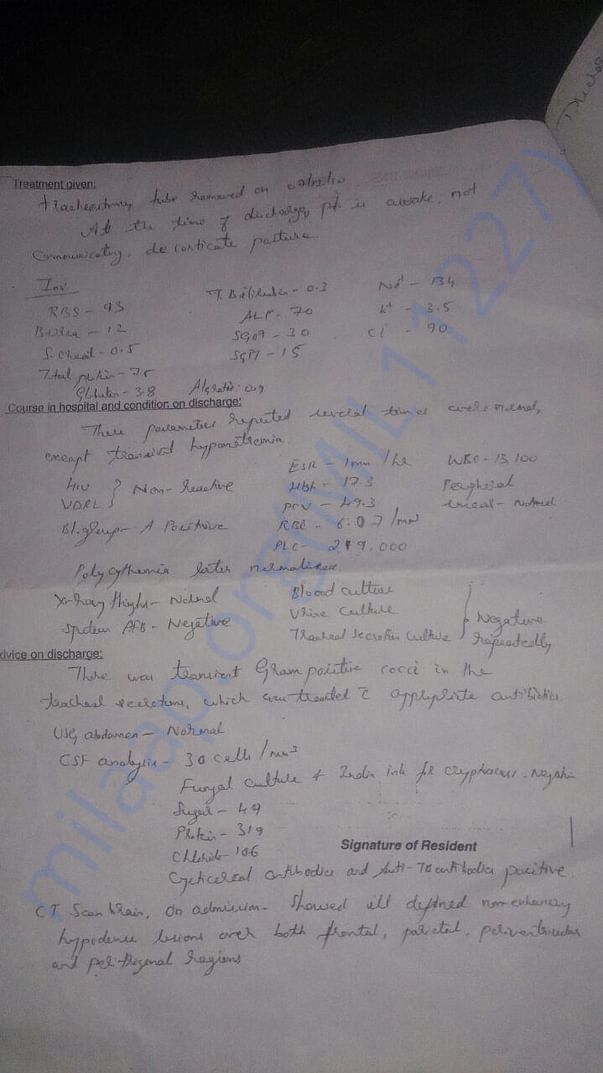 Treatment given:
tracheostomy tube removed on
At the time of discharge, pt. is awake, not
communicating, decorticate posture.
Inv
RBS - 93
B.Urea - 12
S. Creat - 0.5
Total protein - 7.5
Globulin - 3.8
A/g ratio - 0.9
T. Bilirubin - 0.3
ALP - 70
SGOT - 30
SGPT - 15
Na+ - 134
K+ - 3.5
Cl - 90
Course in hospital and condition on discharge:
These parameters repeated several times were normal,
except transient hyponatremia
HIV
VDRL } Non-reactive
Bl. group - A Positive
ESR - 1mm / hr
Hbh - 17.3
PCV - 49.3
RBC - 6.07 /mm
PLC - 219,000
WBC - 13,100
Peripheral
smear - Normal
Polycythemia later normalised
X-ray - Normal
Sputum AFB - Negative
Blood culture
Urine culture
Tracheal secretion culture } Negative
repeatedly
dvice on discharge:
There was transient Gram positive cocci in the
tracheal secretions, which was treated c appropriate antibiotics.
USG abdomen - Normal
CSF analysis - 30 cells / mm3
Fungal culture & India ink for cryptococcus - Negative
Sugar - 49
Protein - 319
Chloride - 106
Signature of Resident
Cysticercal antibodies and Anti-TB antibodies positive.
CT Scan brain, on admission - Showed ill defined non enhancing
hypodense lesions over both frontal, parietal, periventricular
and peri-trigonal regions
milaap.org(MIL11227)